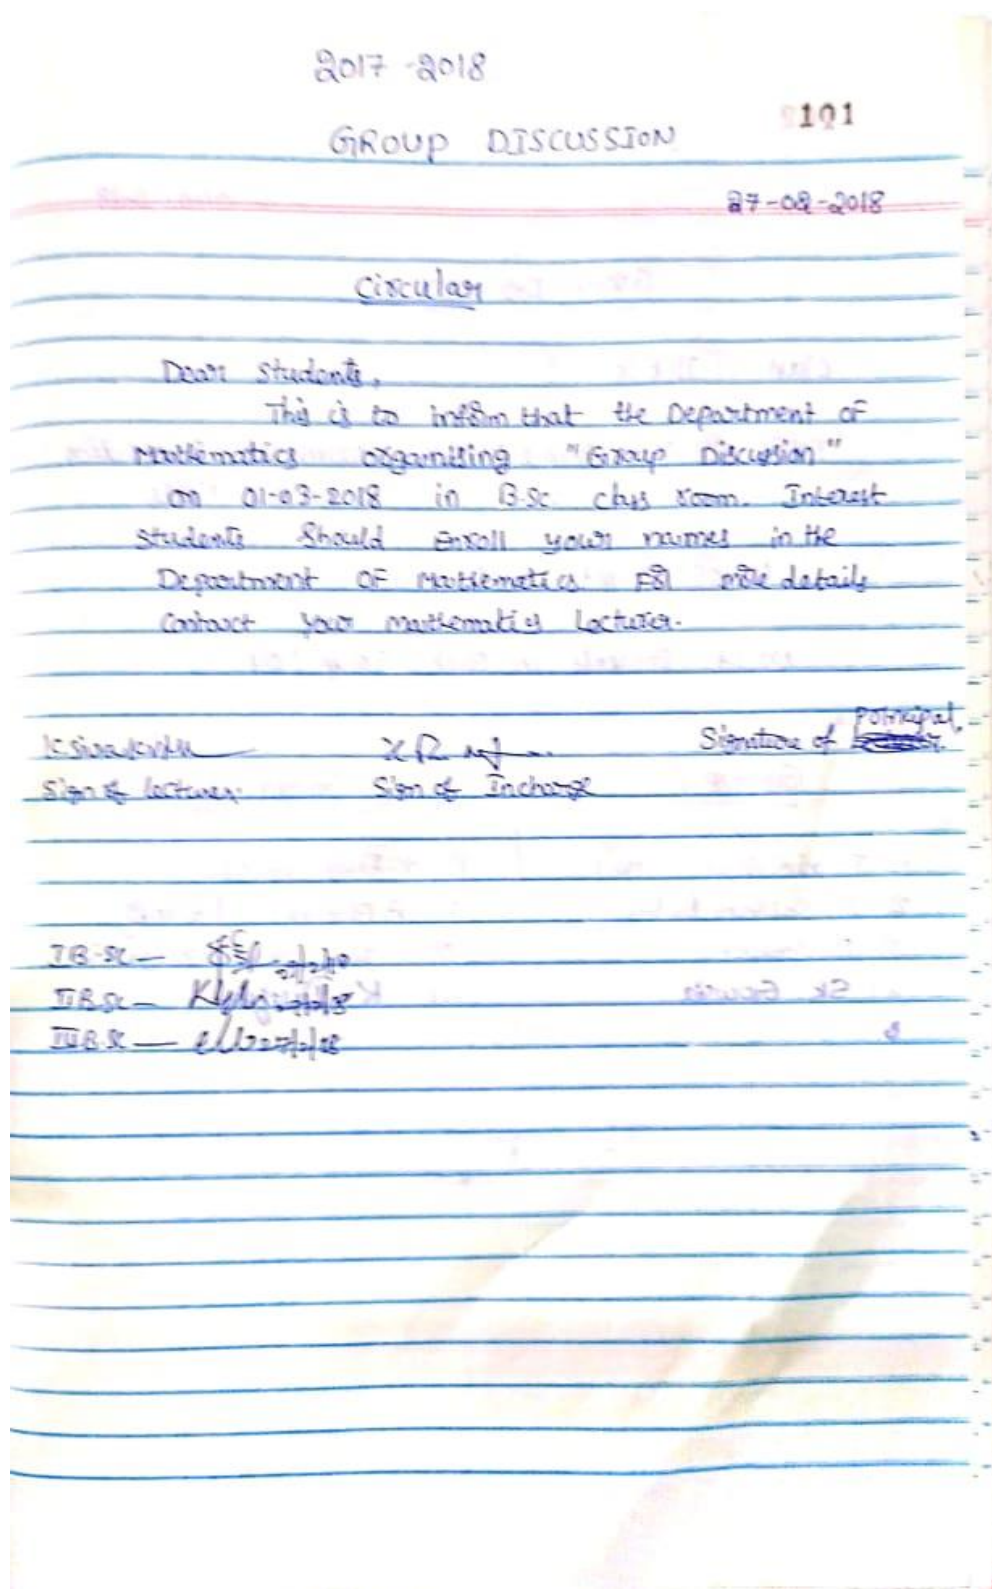 2017 - 2018
101
GROUP DISCUSSION
27-02-2018
Circular
Dear Students,
This is to inform that the Department of
Mathematics organising "Group Discussion"
on 01-03-2018 in B.Sc class room. Interest
students Should Enroll your names in the
Department OF Mathematics. For more details
Contact your mathematics Lecturer.
Principal.
Signature of
Sign of lecturer. Sign of Incharge
I B.SC —
II B.SC — 27/2/18
III B.SC — 27/2/18